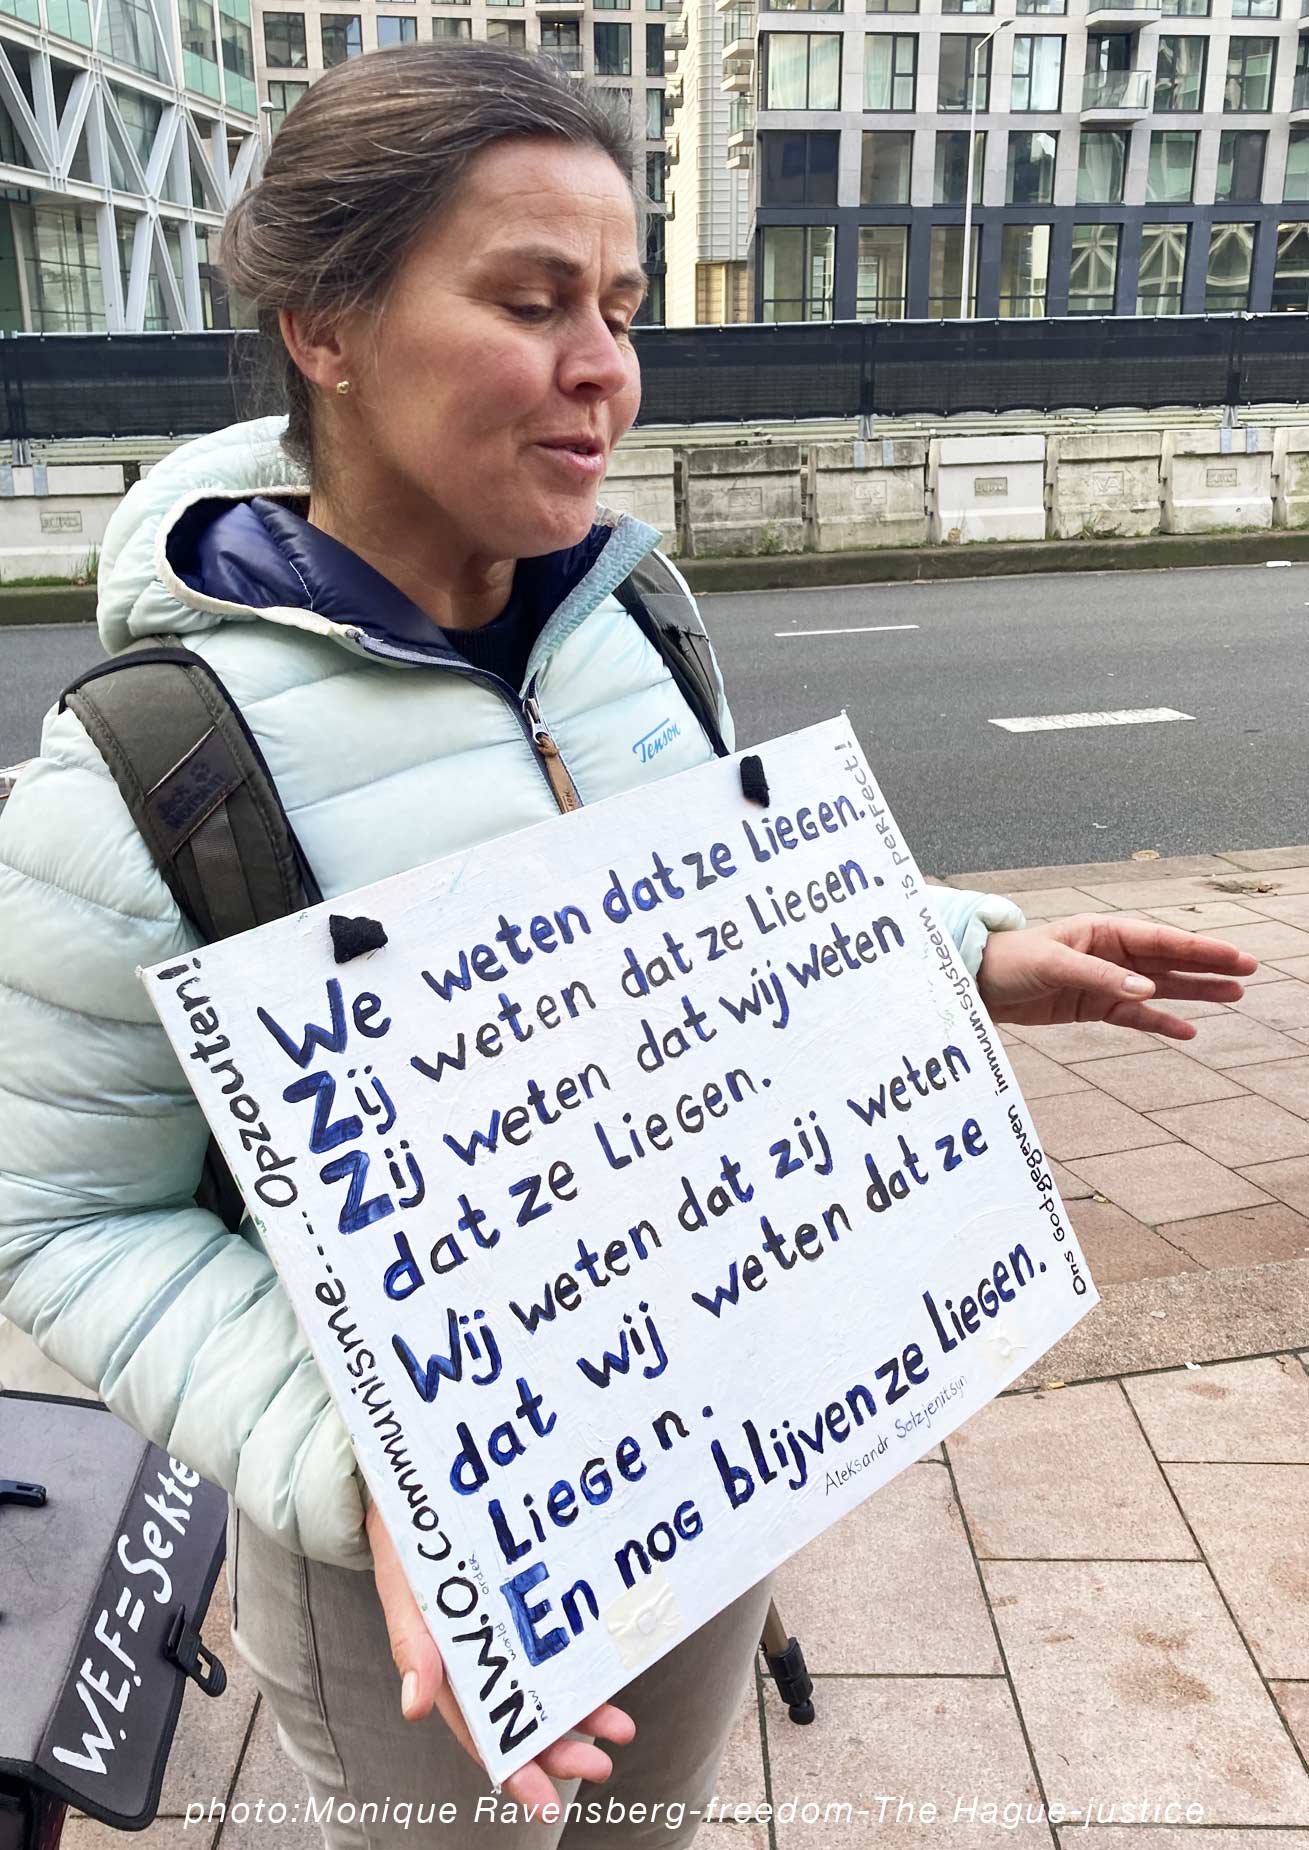 Tenson
We weten dat ze Liegen.
Zij weten dat ze Liegen.
Zij weten dat wij weten
dat ze Liegen.
Wij weten dat zij weten
dat wij weten dat ze
Liegen.
En nog blijven ze liegen.
Aleksandr Solzjenitsyn
N.W.O. Communisme..... Opzouten!
new world order
Ons God-gegeven immuunsysteem is perfect!
W.E.F=Sekte
photo:Monique Ravensberg-freedom-The Hague-justice